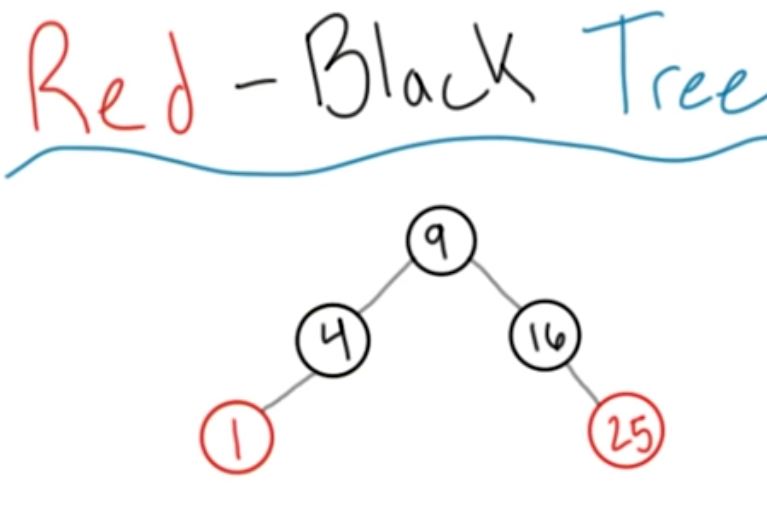 Red - Black Tree
9
4 16
1 25